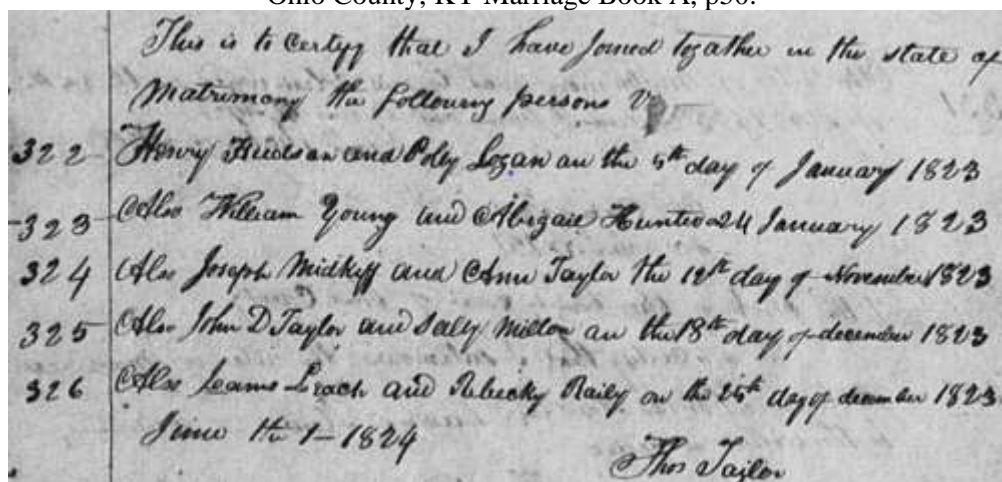 Ohio County, KY Marriage Book A, p50.
This is to Certyg that I have Joined togather in the state of
Matrimony the following persons Vz
322 Henry Hudson and Poley Logan on the 5th day of January 1823
323 Also William Young and Abigail Hunter 24 January 1823
324 Also Joseph Midkiff and Ann Taylor the 12th day of November 1823
325 Also John D Taylor and Sally Milton on the 18th day of december 1823
326 Also Leach and Rebecky Raily on the 25th day of december 1823
June the 1 - 1824
Thos Taylor